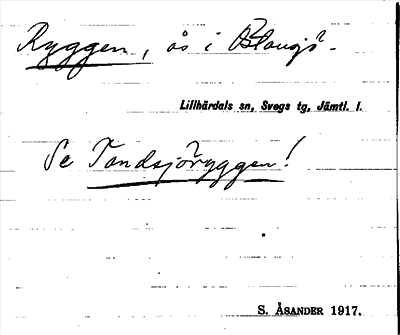 Ryggen, ås i Blangs -
Lillhärdals sn, Svegs tg, Jämtl. l.
Se Tandsjöryggen!
S. ÅSANDER 1917.